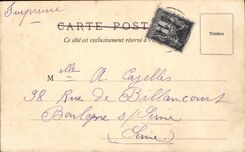 Imprimé
CARTE POST
Ce côté est exclusivement réservé à l'
Timbre
Melle A. Cazelles
38 Rue de Billancourt
Boulogne s/ Seine
(Seine)